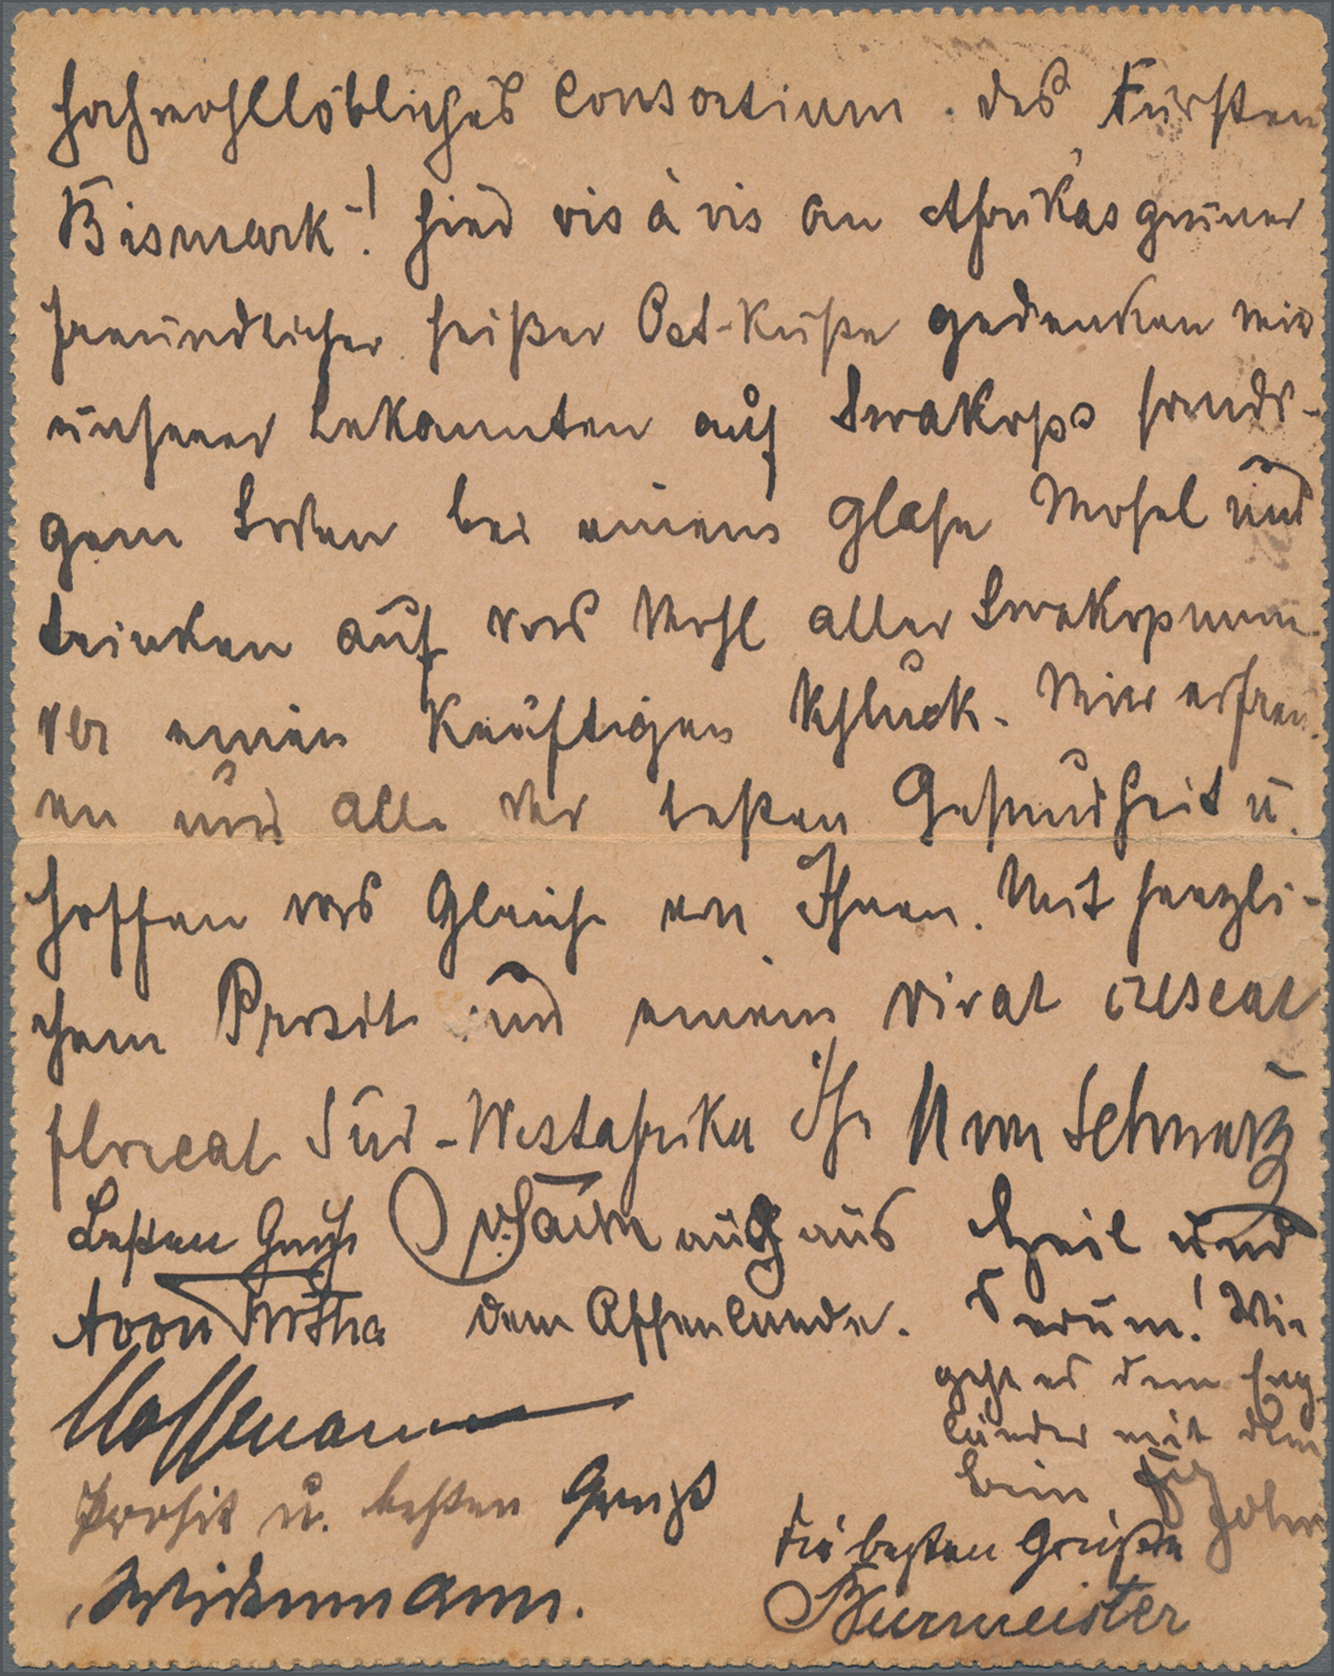 Hochwohllöbliches Consortium des Fürsten
Bismark! Hier vis à vis an Afrikas grüner
freundlicher heißer Ost-Küste gedenken wir
unserer Bekannten auf Swakops sandi-
gem Boden bei einem Glase Mosel und
trinken auf das Wohl aller Swakopmun-
der einen kräftigen Schluck. Wir erfreu-
en uns alle der besten Gesundheit u.
hoffen das Gleiche von Ihnen. Mit herzli-
chem Prosit und einem vivat crescat
floreat Süd-Westafrika Ihr von Schwartz
Besten Gruß auch aus Heil und
dem Affenlande. Serum! Wie
geht es dem Eng-
Hoffmann länder mit dem
Prosit u. besten Gruß Bein John
Die besten Grüße
Wiedemann. Burmeister